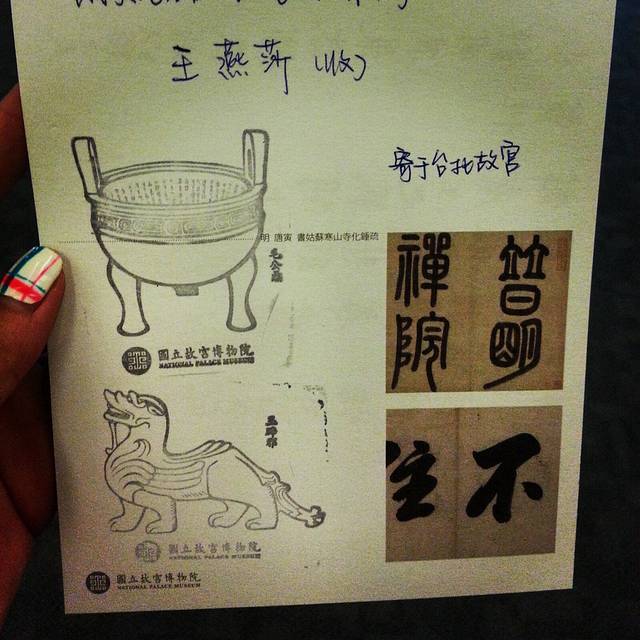 王燕莎（收）
寄于台北故宫
明 唐寅 書姑蘇寒山寺化鍾疏
毛公鼎
國立故宮博物院
NATIONAL PALACE MUSEUM
普明
禪院
不
住
玉辟邪
國立故宮博物院
NATIONAL PALACE MUSEUM
國立故宮博物院
NATIONAL PALACE MUSEUM